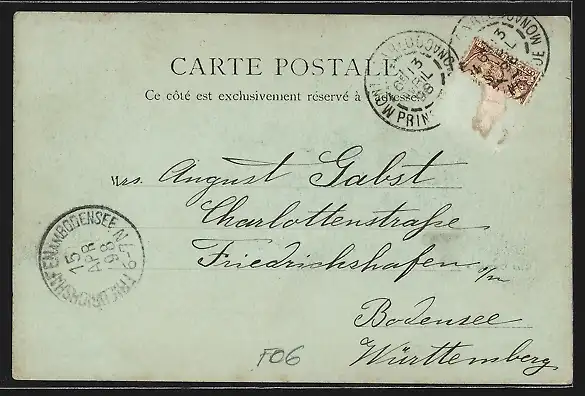 CARTE POSTALE
Ce côté est exclusivement réservé à l'adresse
Mrs. August Gabst
Charlottenstraße
Friedrichshafen a/m
Bodensee
Württemberg
FRIEDRICHSHAFEN AM BODENSEE
15
APR
98
6-7
MONACO
PRIN
13
98
F06